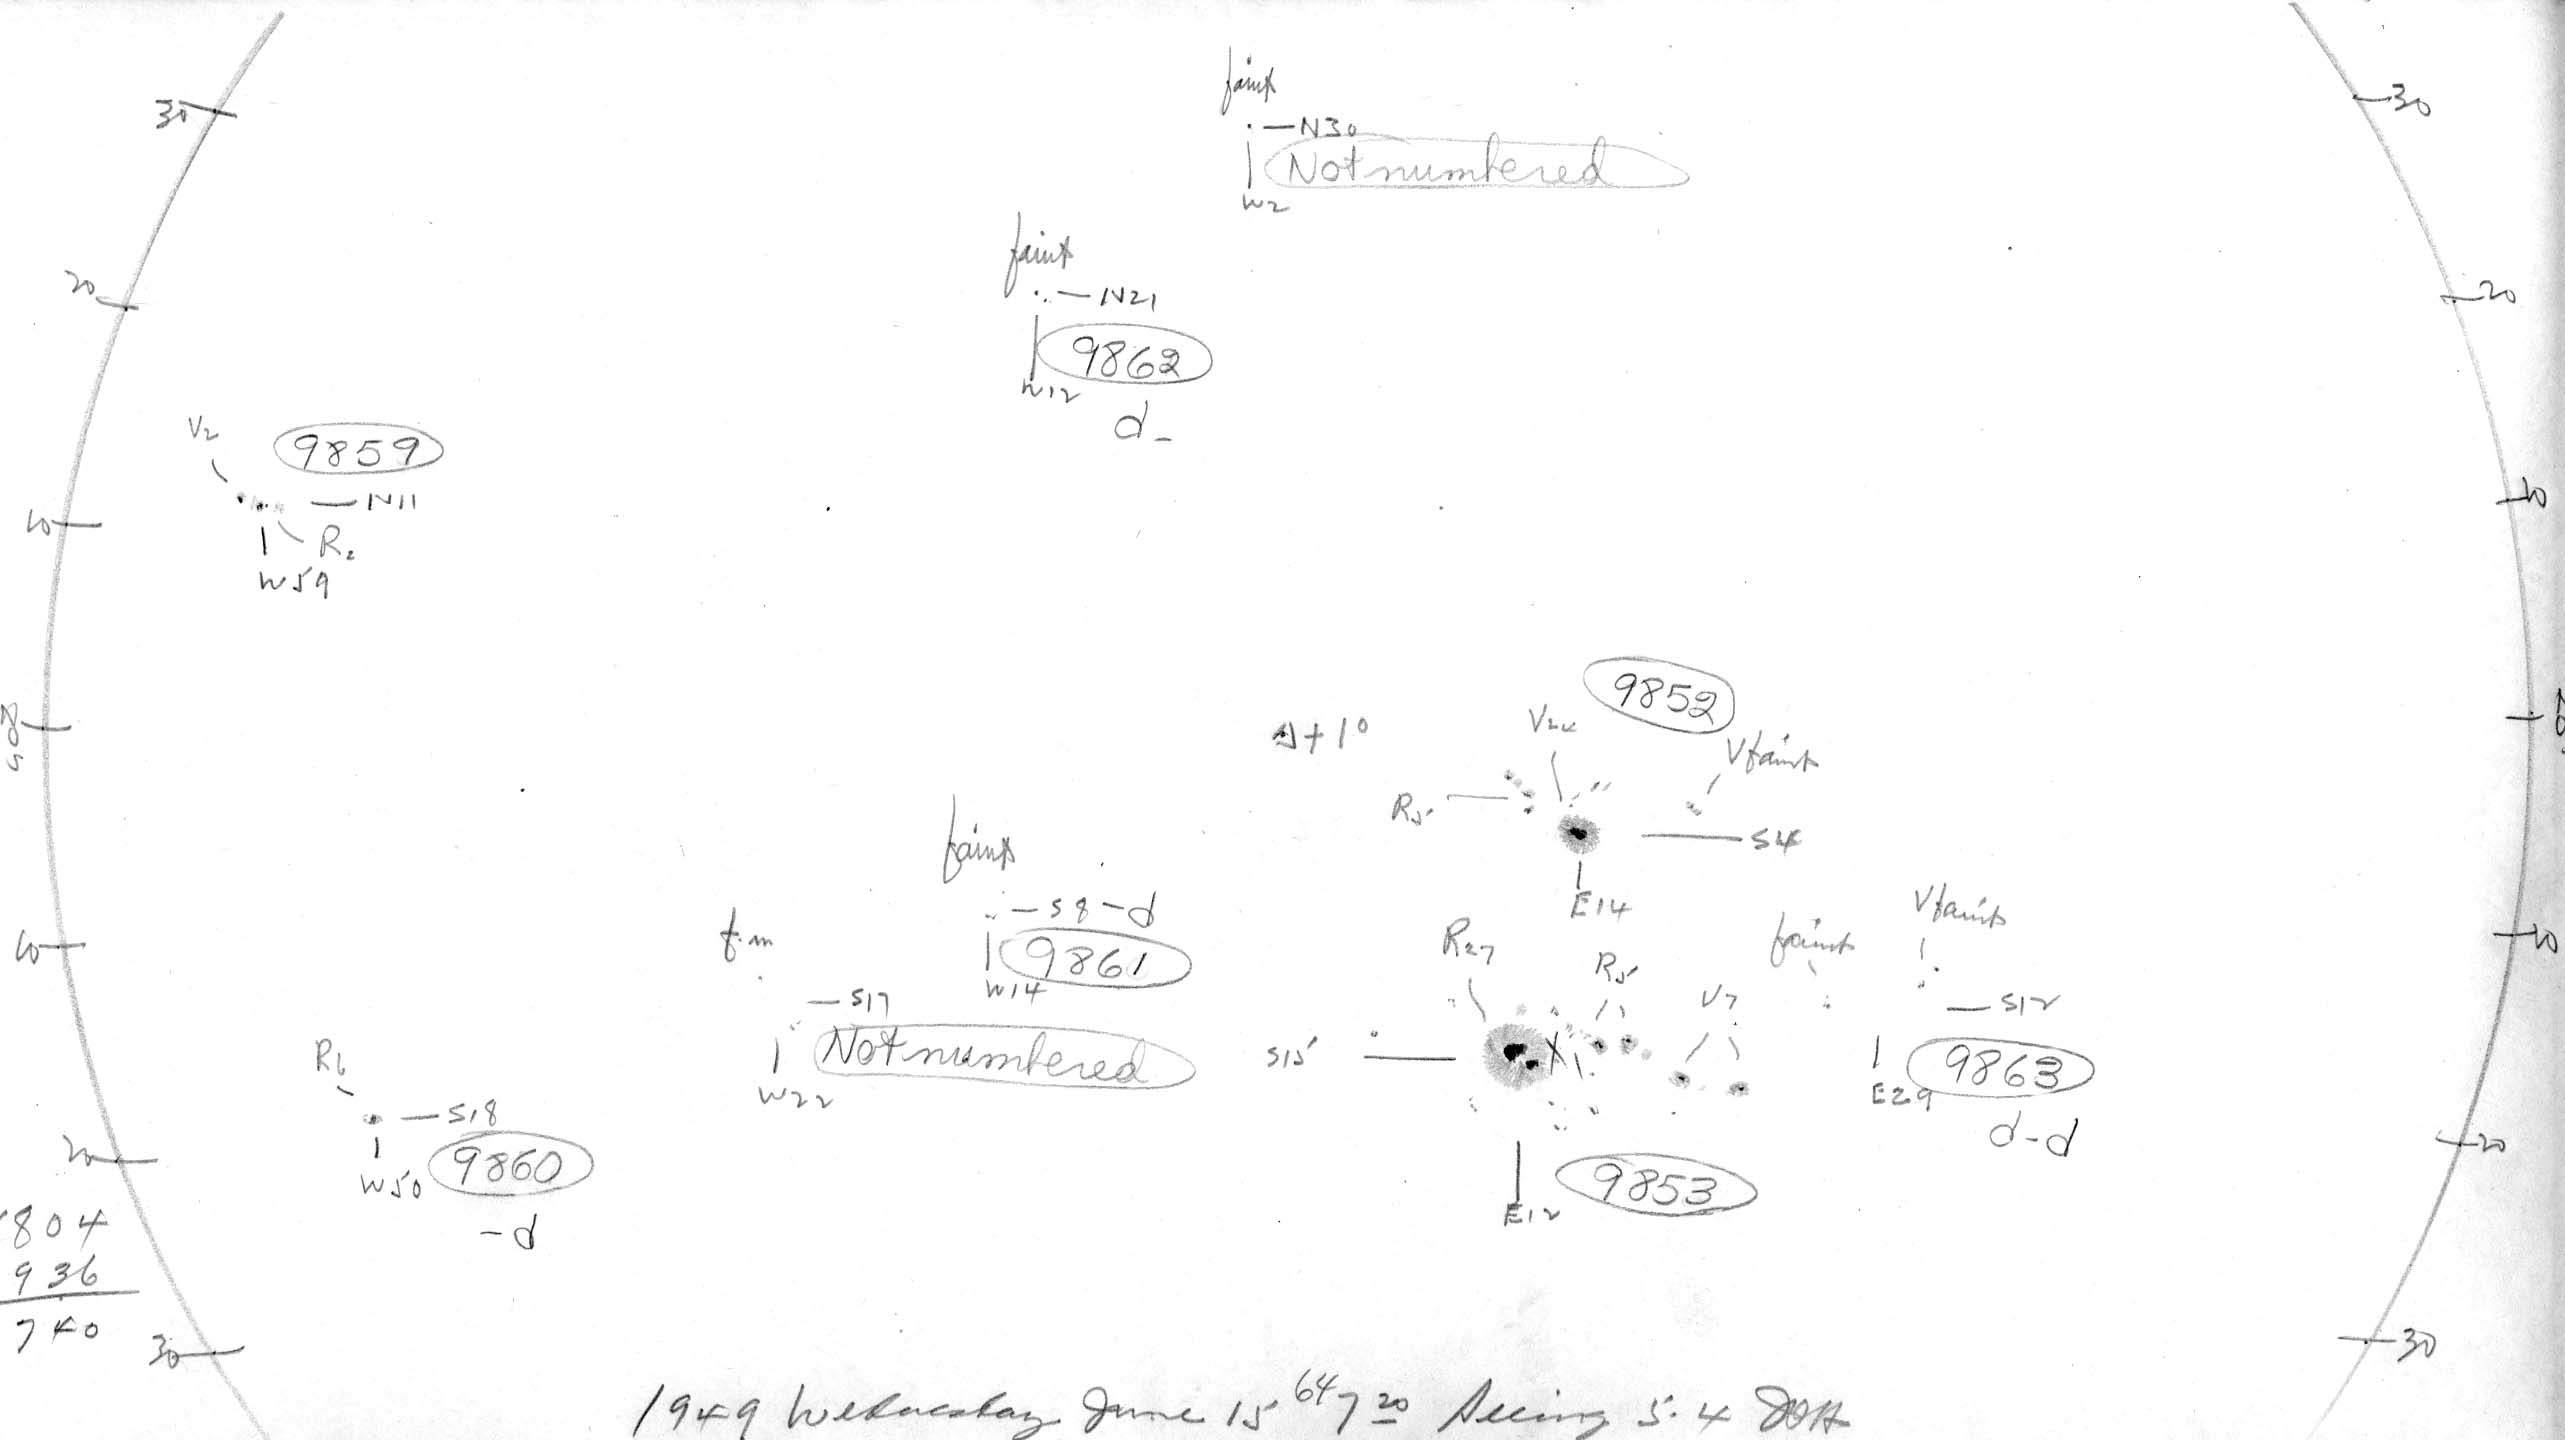 faint
30
30
N30
Not numbered
W2
faint
20
N21
20
9862
W12
d-
V2
9859
N11
10
10
R2
W59
9852
Δ+1°
V24
Vfaint
R5
S4
E14
faint
S8 -d
Vfaint
f.m
R27
faint
9861
R5
10
10
W14
V7
S17
S12
Not numbered
S15
R6
9863
W22
E29
S18
d-d
20
20
9860
9853
W50
E12
804
-d
936
740
30
30
1949 Wednesday June 15 64 7 20 Seeing 5.4